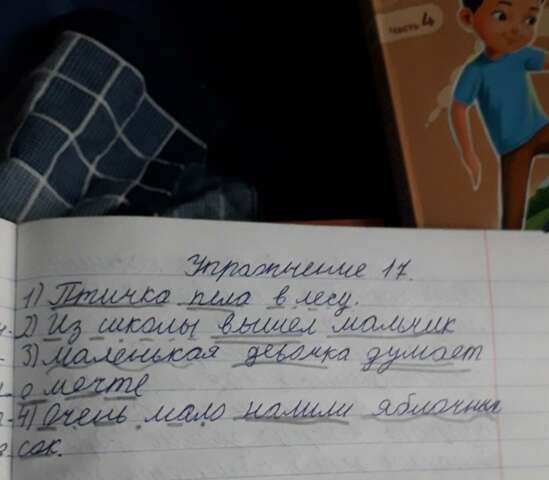 часть 4
Упражнение 17.
1) Птичка пела в лесу.
2) Из школы вышел мальчик
3) Маленькая девочка думает
о мечте
4) Очень мало налили яблочный
сок.